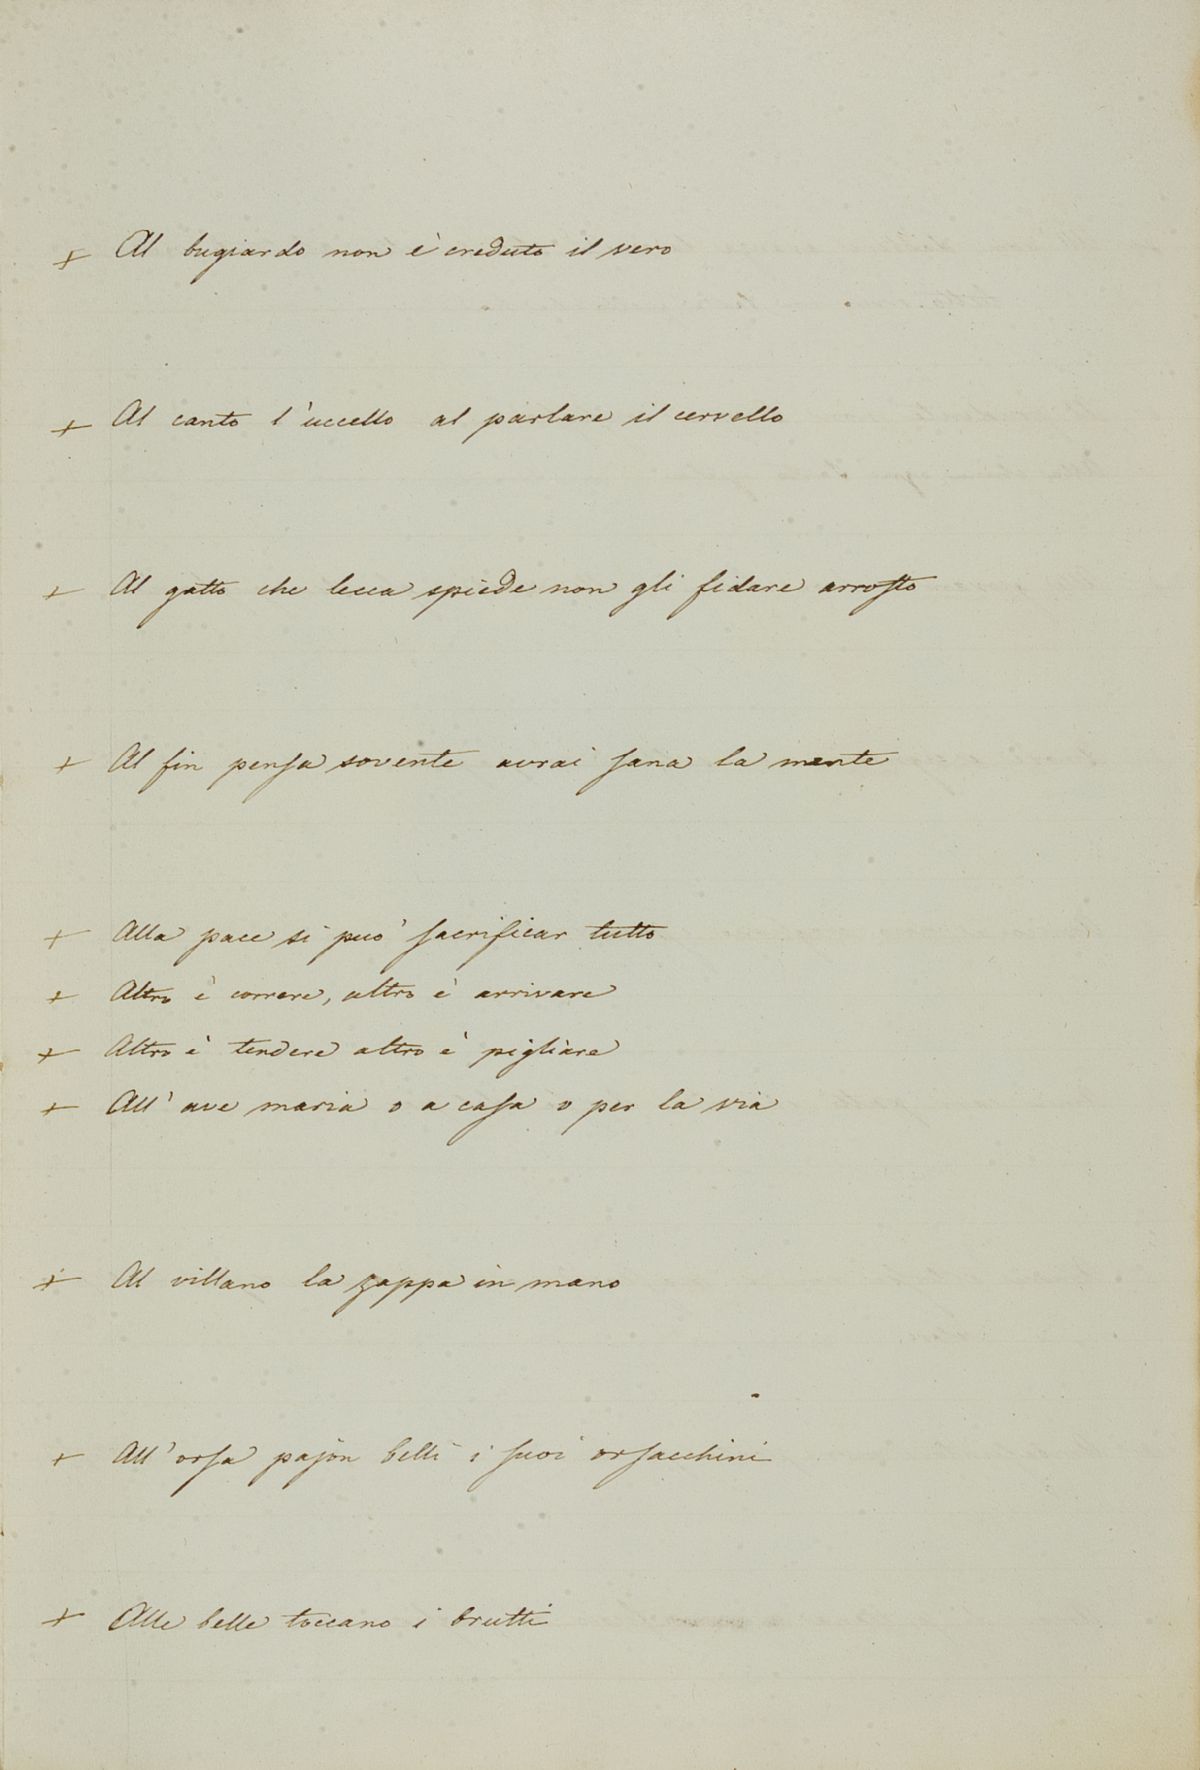 + Al bugiardo non è creduto il vero
+ Al canto l'uccello al parlare il cervello
+ Al gatto che lecca spiede non gli fidare arrosto
+ Al fin pensa sovente avrai sana la mente
+ Alla pace si può sacrificar tutto
+ Altro è correre, altro è arrivare
+ Altro è tendere altro è pigliare
+ All' ave maria o a casa o per la via
+ Al villano la zappa in mano
+ All' orsa pajon belli i suoi orsacchini
+ Alle belle toccano i brutti